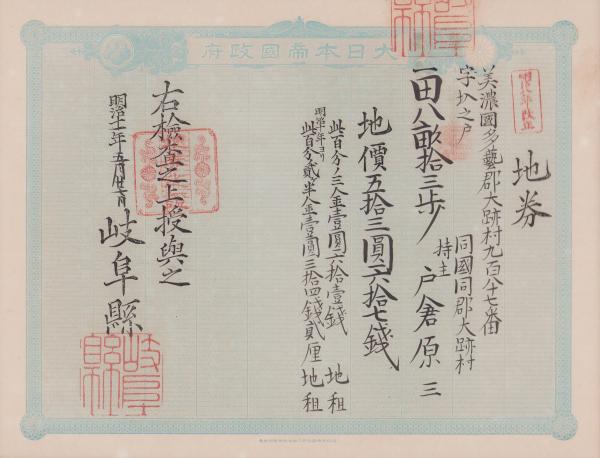 大日本帝國政府
明治八年改正
地券
美濃國多藝郡大跡村九百八十七番
字圦之戸
同國同郡大跡村
持主 戸倉原三
一田八畝拾三歩
地價五拾三圓六拾七錢
此百分ノ三 金壹圓六拾壹錢 地租
明治十年ヨリ
此百分ノ貳ヶ半 金壹圓三拾四錢貳厘 地租
右檢査之上授與之
明治十一年
岐阜縣
岐阜縣